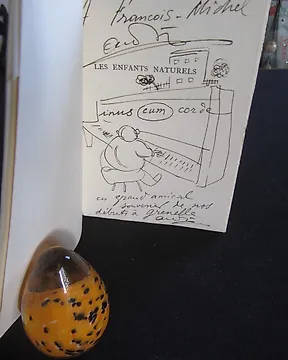 François-Michel
LES ENFANTS NATURELS
inus cum corde
en grand amical
souvenir de nos
débuts à grenelle